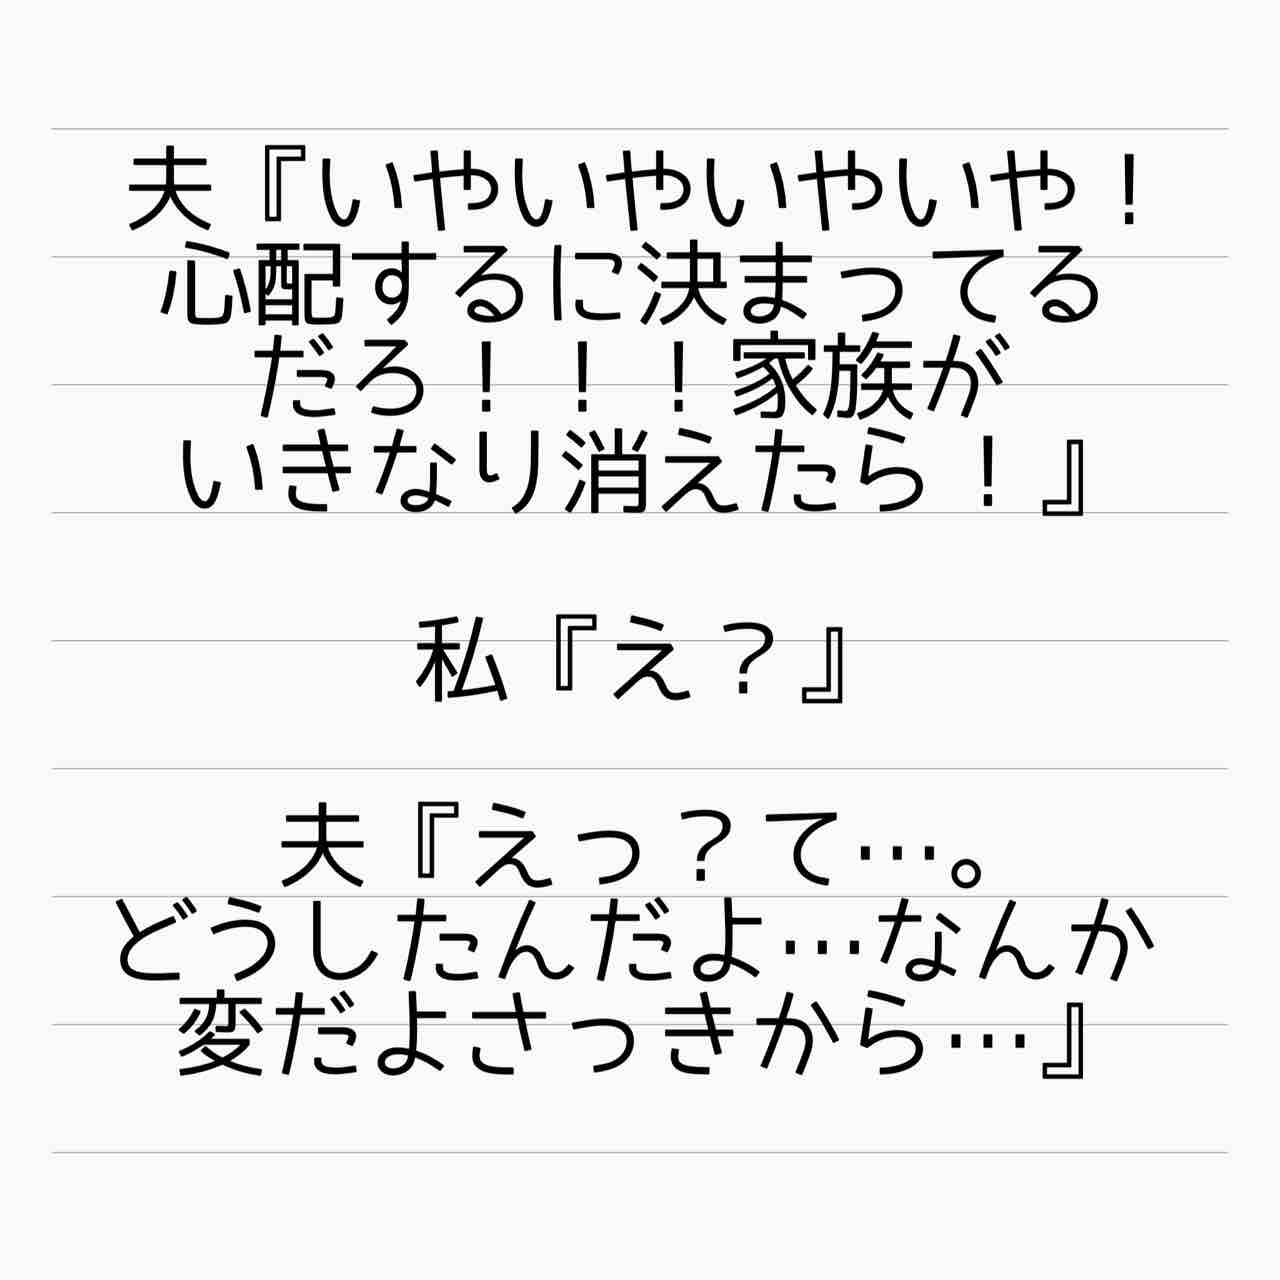 夫『いやいやいやいや！
心配するに決まってる
だろ！！！家族が
いきなり消えたら！』
私『え？』
夫『えっ？て…。
どうしたんだよ…なんか
変だよさっきから…』